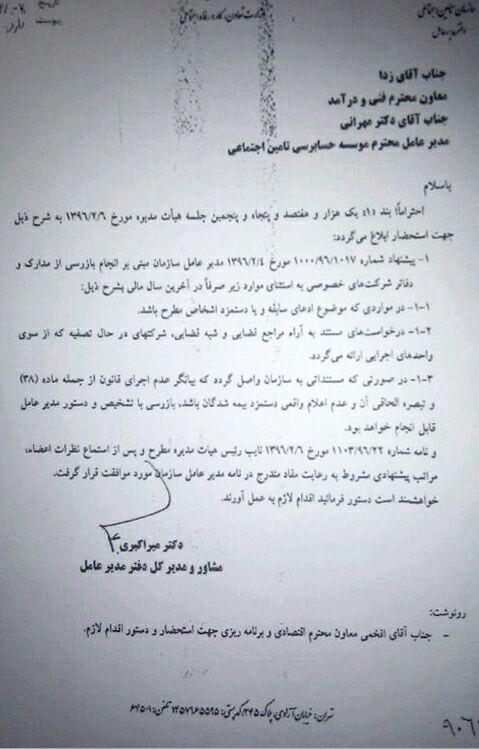 سازمان تامین اجتماعی
وزارت تعاون، کار و رفاه اجتماعی
تاریخ
پیوست
دارد
جناب آقای زدا
معاون محترم فنی و درآمد
جناب آقای دکتر مهرانی
مدیر عامل محترم موسسه حسابرسی تامین اجتماعی
باسلام
احتراماً؛ بند «۱» یک هزار و هفتصد و پنجاه و پنجمین جلسه هیأت مدیره مورخ ۱۳۹۶/۲/۶ به شرح ذیل
جهت استحضار ابلاغ می‌گردد:
۱- پیشنهاد شماره ۱۰۰۰/۹۶/۱۰۱۷ مورخ ۱۳۹۶/۲/۴ مدیر عامل سازمان مبنی بر انجام بازرسی از مدارک و
دفاتر شرکت‌های خصوصی به استثنای موارد زیر صرفاً در آخرین سال مالی بشرح ذیل:
۱-۱- در مواردی که موضوع ادعای سابقه و یا دستمزد اشخاص مطرح باشد.
۱-۲- درخواست‌های مستند به آراء مراجع قضایی و شبه قضایی، شرکتهای در حال تصفیه که از سوی
واحدهای اجرایی ارائه می‌گردد.
۱-۳- در صورتی که مستنداتی به سازمان واصل گردد که بیانگر عدم اجرای قانون از جمله ماده (۳۸)
و تبصره الحاقی آن و عدم اعلام واقعی دستمزد بیمه شدگان باشد، بازرسی با تشخیص و دستور مدیر عامل
قابل انجام خواهد بود.
و نامه شماره ۱۱۰۳/۹۶/۲۲ مورخ ۱۳۹۶/۲/۶ نایب رئیس هیات مدیره مطرح و پس از استماع نظرات اعضاء،
مراتب پیشنهادی مشروط به رعایت مفاد مندرج در نامه مدیر عامل سازمان مورد موافقت قرار گرفت.
خواهشمند است دستور فرمائید اقدام لازم به عمل آورند.
دکتر میراکبری
مشاور و مدیر کل دفتر مدیر عامل
رونوشت:
- جناب آقای افخمی معاون محترم اقتصادی و برنامه ریزی جهت استحضار و دستور اقدام لازم.
تهران: خیابان آزادی، پلاک ۳۴۵ کدپستی: ۱۴۵۷۹۶۵۵۹۵ تلفن: ۶۴۵۰۱